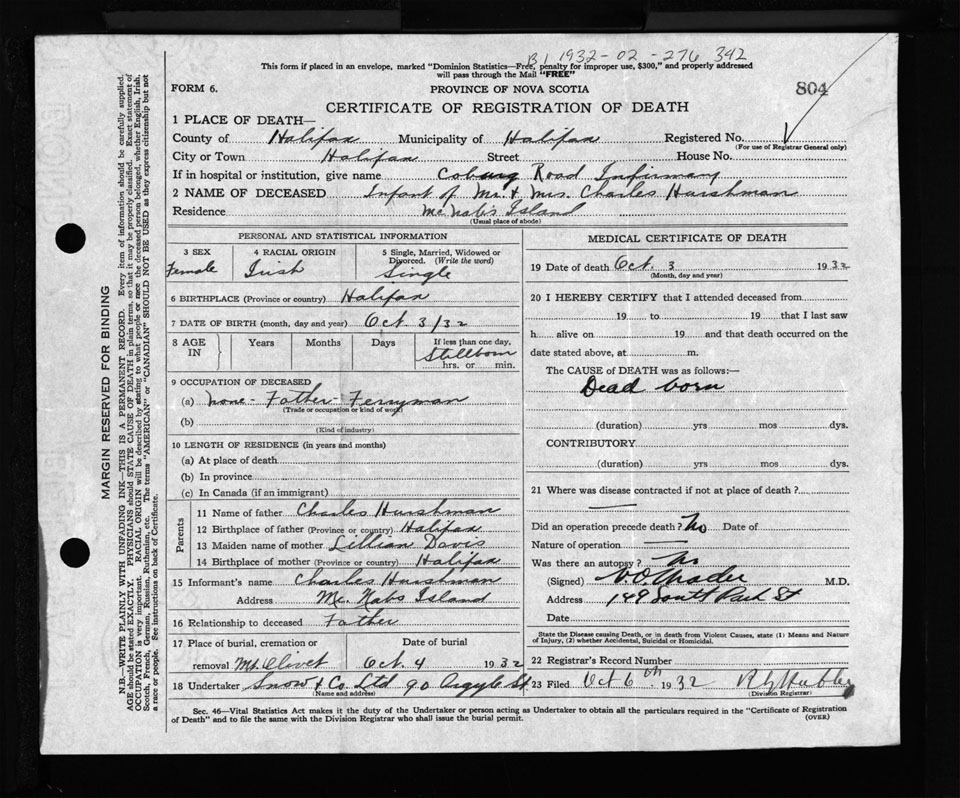 B1 1932-02-276342
This form if placed in an envelope, marked "Dominion Statistics—Free, penalty for improper use, $300," and properly addressed
will pass through the Mail "FREE"
FORM 6. PROVINCE OF NOVA SCOTIA 804
CERTIFICATE OF REGISTRATION OF DEATH
1 PLACE OF DEATH—
County of Halifax Municipality of Halifax Registered No.
(For use of Registrar General only)
City or Town Halifax Street House No.
If in hospital or institution, give name Coburg Road Infirmary
2 NAME OF DECEASED Infant of Mr. & Mrs. Charles Hurshman
Residence McNabs Island
(Usual place of abode)
PERSONAL AND STATISTICAL INFORMATION
3 SEX 4 RACIAL ORIGIN 5 Single, Married, Widowed or
Divorced. (Write the word)
Female Irish Single
6 BIRTHPLACE (Province or country) Halifax
7 DATE OF BIRTH (month, day and year) Oct 3/32
8 AGE IN Years Months Days If less than one day,
Stillborn
hrs. or min.
9 OCCUPATION OF DECEASED
(a) None - Father - Ferryman
(Trade or occupation or kind of work)
(b)
(Kind of industry)
10 LENGTH OF RESIDENCE (in years and months)
(a) At place of death
(b) In province
(c) In Canada (if an immigrant)
Parents
11 Name of father Charles Hurshman
12 Birthplace of father (Province or country) Halifax
13 Maiden name of mother Lillian Davis
14 Birthplace of mother (Province or country) Halifax
15 Informant's name Charles Hurshman
Address Mc. Nabs Island
16 Relationship to deceased Father
17 Place of burial, cremation or Date of burial
removal Mt. Olivet Oct. 4 1932
18 Undertaker Snow & Co. Ltd 90 Argyle St.
(Name and address)
MEDICAL CERTIFICATE OF DEATH
19 Date of death Oct. 3 1932
(Month, day and year)
20 I HEREBY CERTIFY that I attended deceased from
19 to 19 that I last saw
h alive on 19 and that death occurred on the
date stated above, at m.
The CAUSE of DEATH was as follows:—
Dead born
(duration) yrs mos dys.
CONTRIBUTORY
(duration) yrs mos dys.
21 Where was disease contracted if not at place of death?
Did an operation precede death? No Date of
Nature of operation
Was there an autopsy? No
(Signed) M.D.
Address 149 South Park St
Date
State the Disease causing Death, or in death from Violent Causes, state (1) Means and Nature
of Injury, (2) whether Accidental, Suicidal or Homicidal.
22 Registrar's Record Number
23 Filed Oct 6th 1932
(Division Registrar)
Sec. 46—Vital Statistics Act makes it the duty of the Undertaker or person acting as Undertaker to obtain all the particulars required in the "Certificate of Registration
of Death" and to file the same with the Division Registrar who shall issue the burial permit. (OVER)
MARGIN RESERVED FOR BINDING
N.B.—WRITE PLAINLY WITH UNFADING INK—THIS IS A PERMANENT RECORD. Every item of information should be carefully supplied.
AGE should be stated EXACTLY. PHYSICIANS should STATE CAUSE OF DEATH in plain terms, so that it may be properly classified. Exact statement of
OCCUPATION is very important. RACIAL ORIGIN will be described by stating to what people or race the deceased person belonged, whether English, Irish,
Scotch, French, German, Russian, Ruthenian, etc. The terms "AMERICAN" or "CANADIAN" SHOULD NOT BE USED as they express citizenship but not
a race or people. See instructions on back of Certificate.